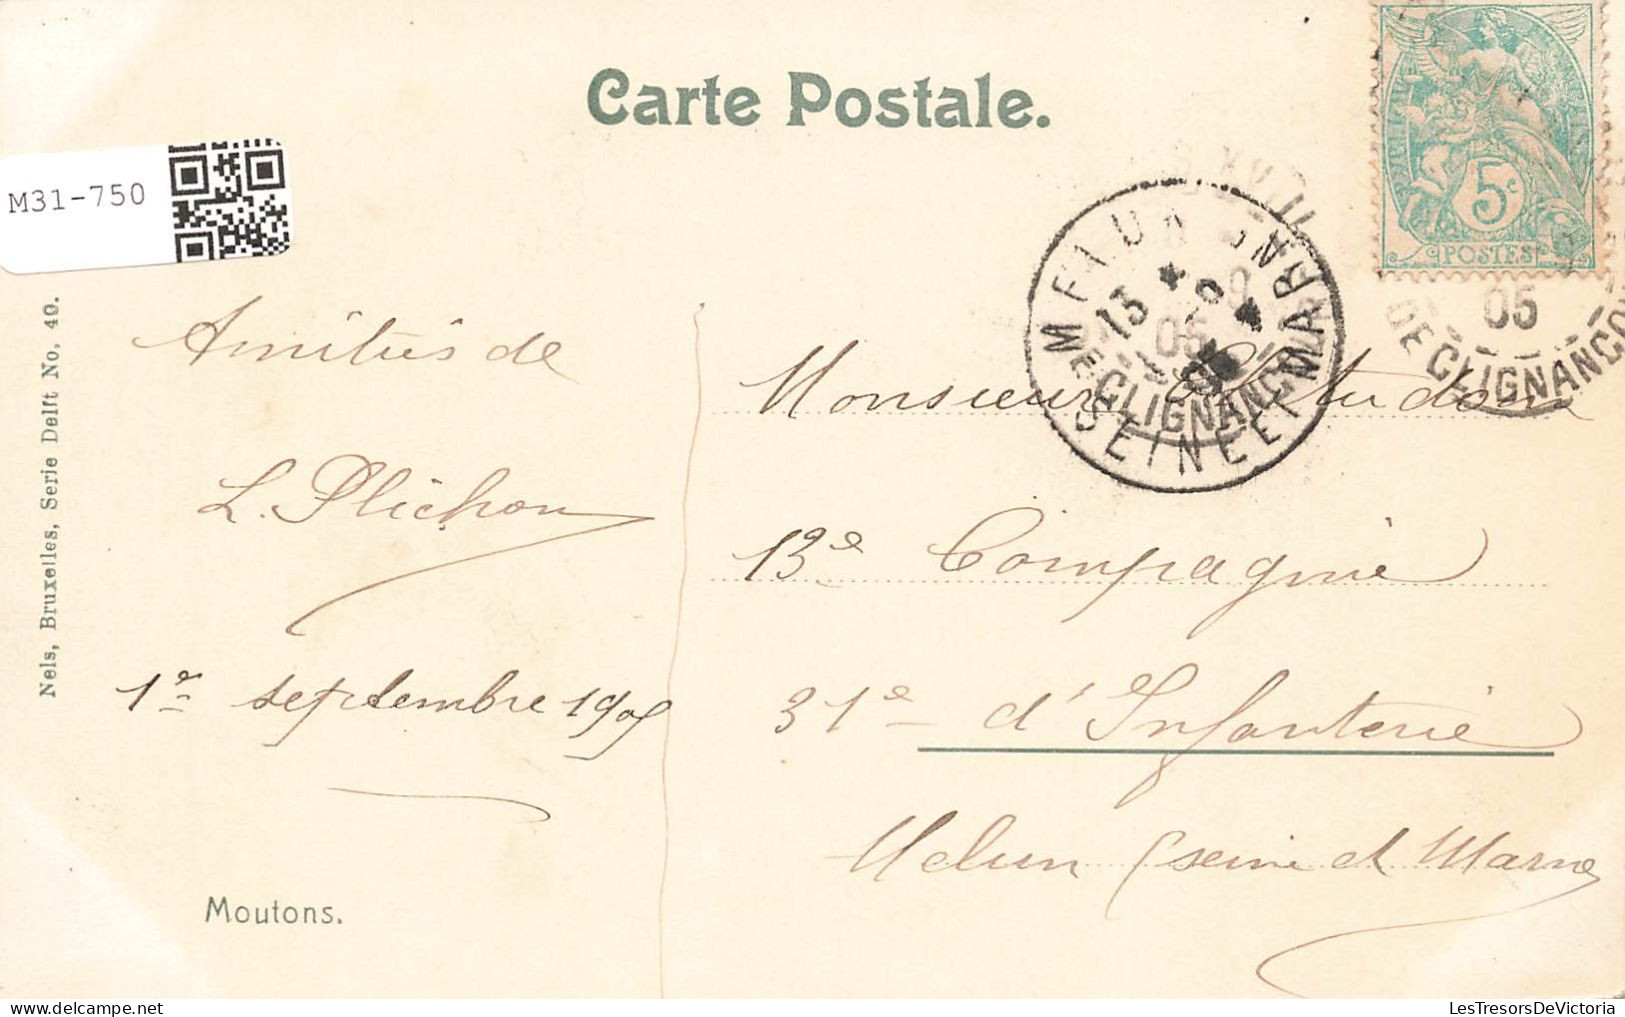 Carte Postale.
M31-750
Nels, Bruxelles, Serie Delft No. 40.
5c
POSTES
05
DE CLIGNANCO
MEAUX
13
05
DE CLIGNANC
SEINE ET MARNE
Amitiés de
L. Plichon
1er septembre 1905
Moutons.
Monsieur
13e Compagnie
31e d'Infanterie
Melun (seine et Marne
LesTresorsDeVictoria